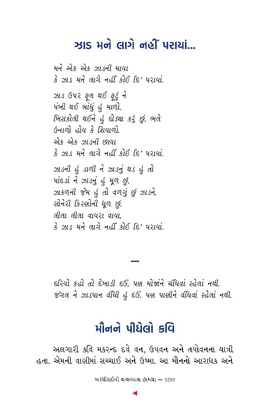 ઝાડ મને લાગે નહીં પરાયાં...
મને એક એક ઝાડની માયા
કે ઝાડ મને લાગે નહીં કોઈ દિ' પરાયાં.
ઝાડ ઉપર ફૂલ થઈ ફૂટું ને
પંખી થઈ બાંધું હું માળો.
ખિસકોલી થઈને હું દોડ્યા કરું છું, ભલે
ઉનાળો હોય કે શિયાળો.
એક એક ઝાડની છાયા
કે ઝાડ મને લાગે નહીં કોઈ દિ' પરાયાં.
ઝાડની હું ડાળી ને ઝાડનું થડ હું તો
પાંદડાં ને ઝાડનું હું મૂળ છું.
ઝાકળની જેમ હું તો વળગું છું ઝાડને,
સોનેરી કિરણોની ધૂળ છું.
લીલા લીલા વાયરા વાયા,
કે ઝાડ મને લાગે નહીં કોઈ દિ' પરાયાં.
—
દરિયો કહો તો દેખાડી દઉં, પણ મોજાંને ચીંધવાં સ્હેલાં નથી.
જંગલ ને ઝાડપાન ચીંધી હું દઉં, પણ પાણીને ચીંધવાં સ્હેલાં નથી.
મૌનને પીધેલો કવિ
અલગારી કવિ મકરન્દ દવે વન, ઉપવન અને તપોવનના યાત્રી
હતા. એમની વાણીમાં સચ્ચાઈ અને ઉષ્મા. આ મૌનનો આરાધક અને
અરધીસદીની વાચનયાત્રા